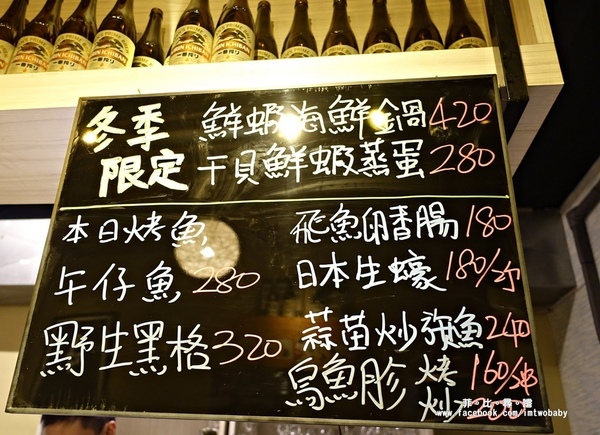 冬季限定
鮮蝦海鮮鍋420
干貝鮮蝦蒸蛋280
本日烤魚
午仔魚280
野生黑格320
飛魚卵香腸180
日本生蠔180/
蒜苗炒 魚240
烏魚胗 烤160/串
炒
菲。比。嘴。嚐
www.facebook.com/imtwobaby